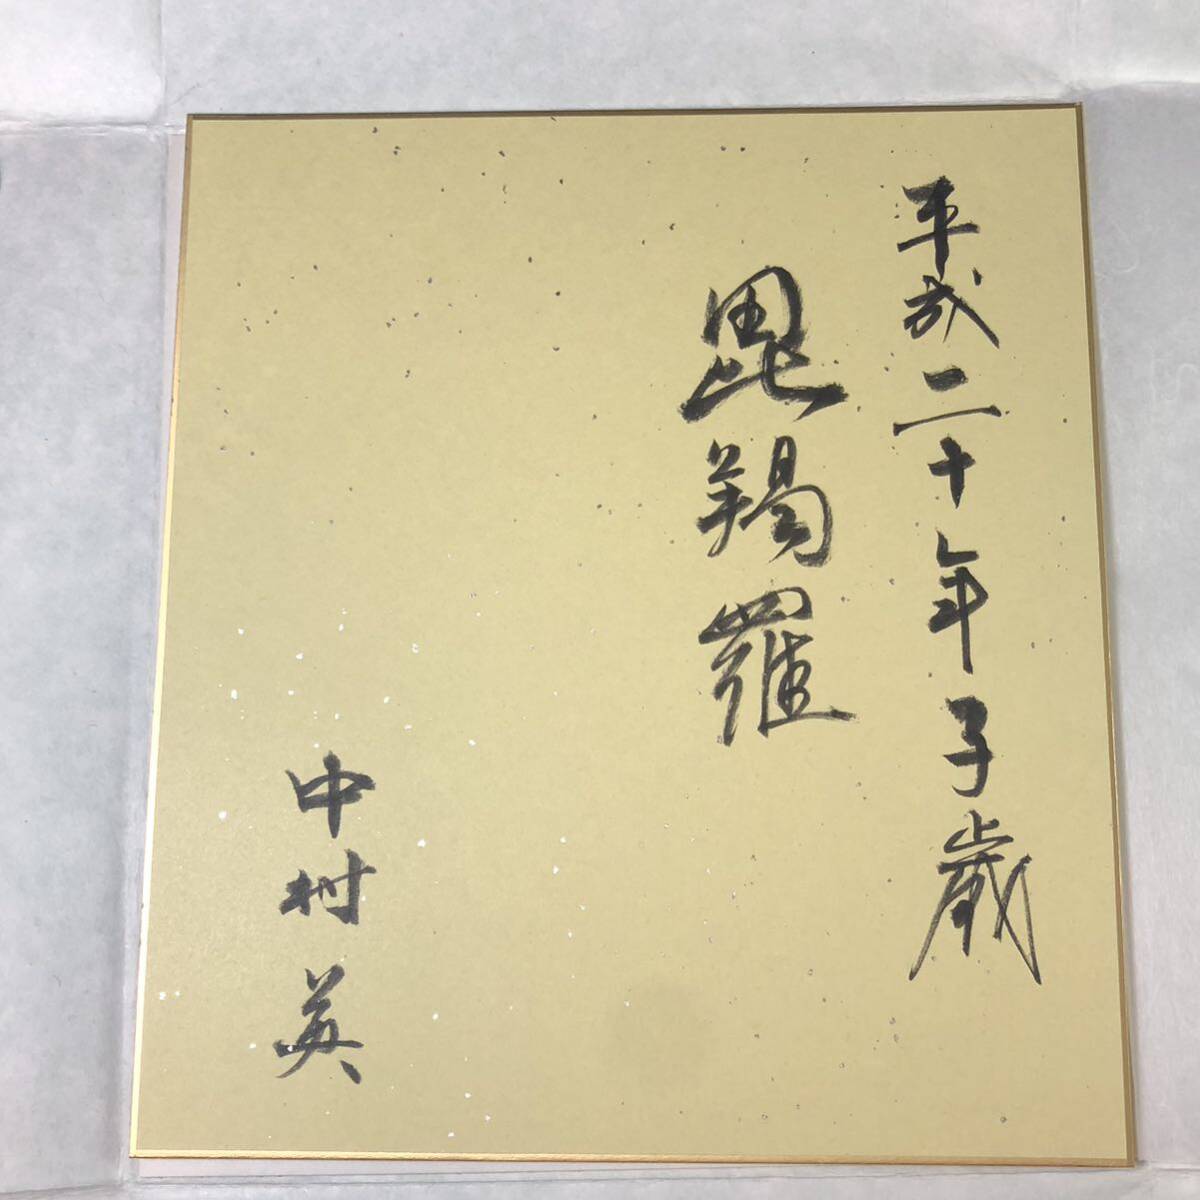 平成二十年子歳
毘羯羅
中村英